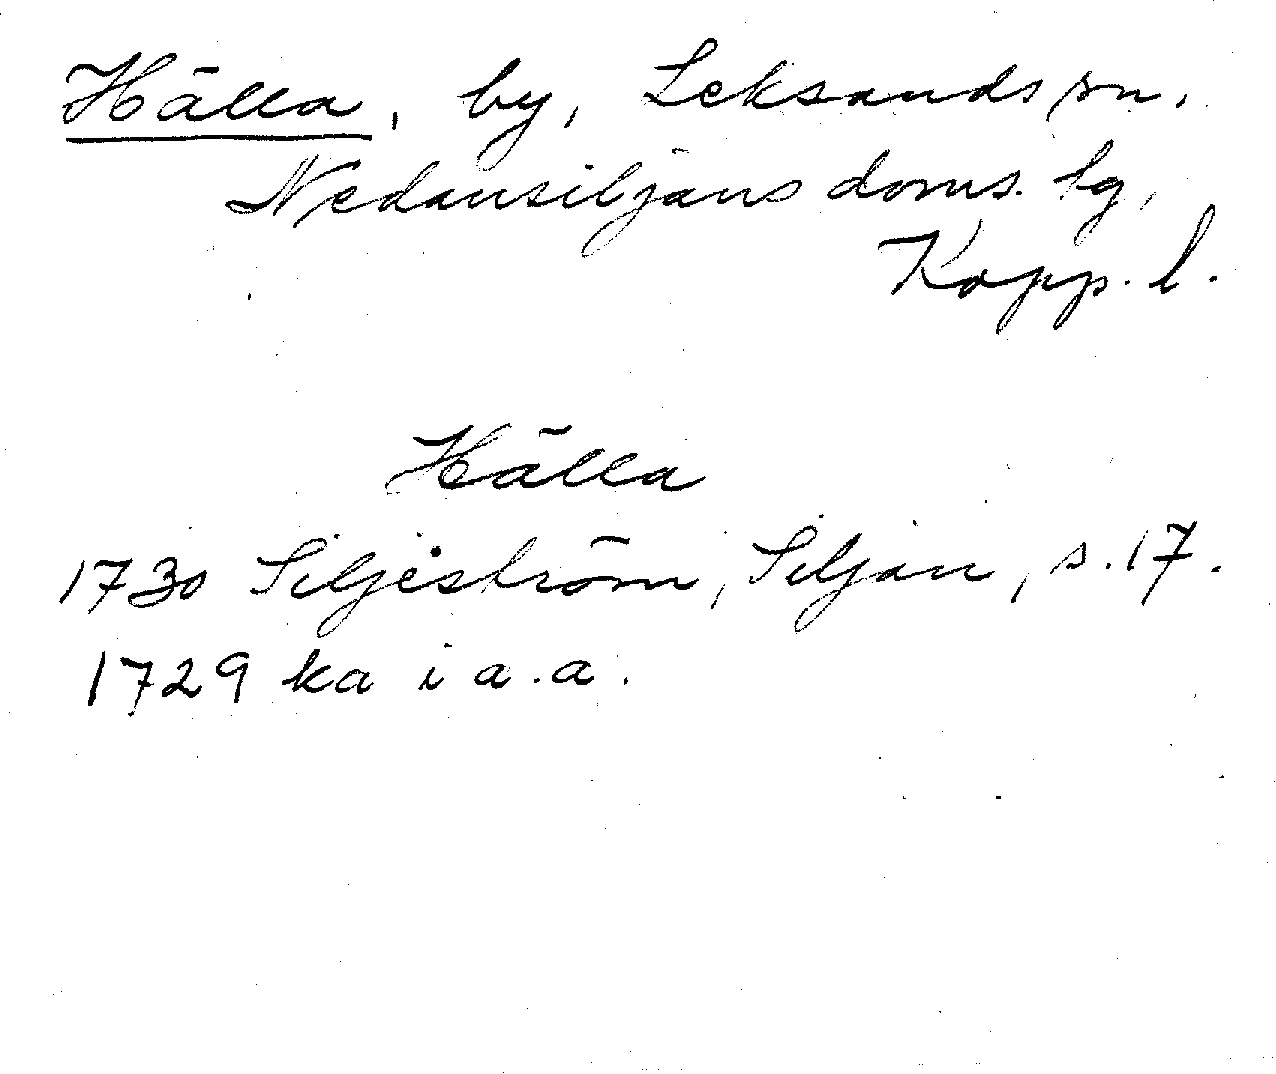 Hälla, by, Leksands sn,
Nedansiljans doms. lg,
Kopp. l.
Hälla
1730 Siljeström, Siljan, s. 17.
1729 ka i a.a.